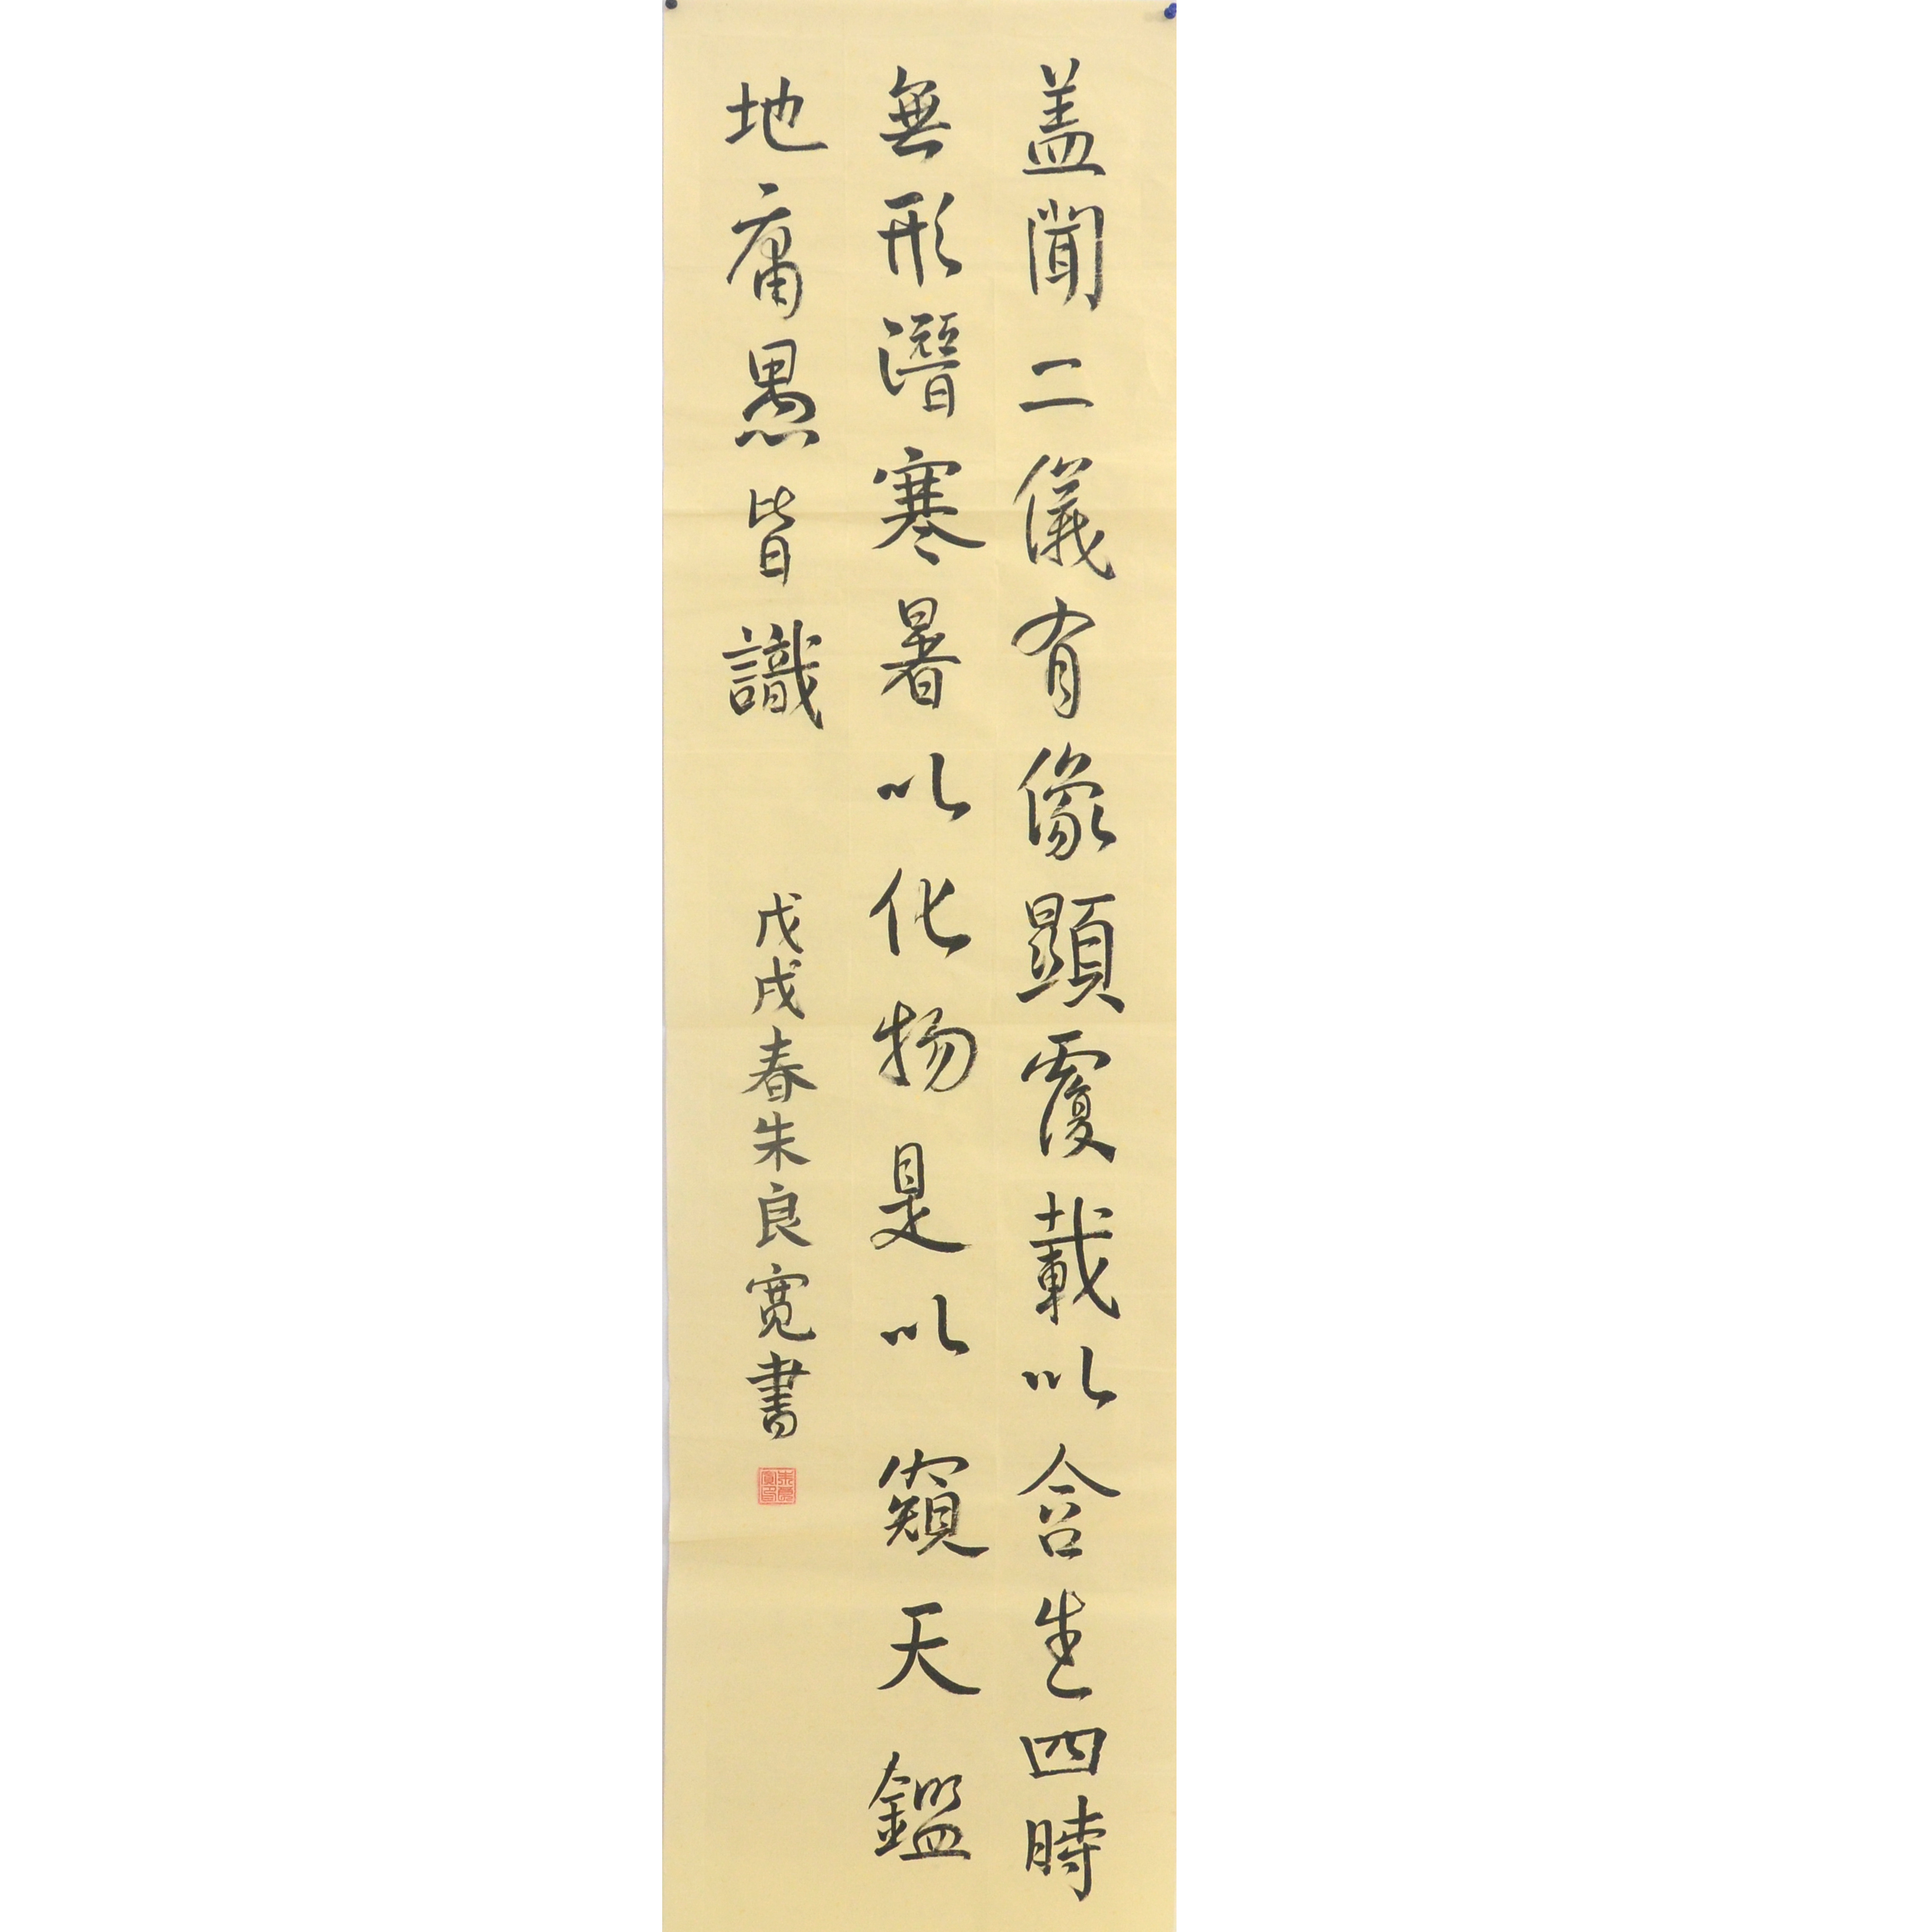 盖聞二儀有像顯覆載以含生四時
無形潛寒暑以化物是以窺天鑑
地庸愚皆識
戊戌春朱良寬書